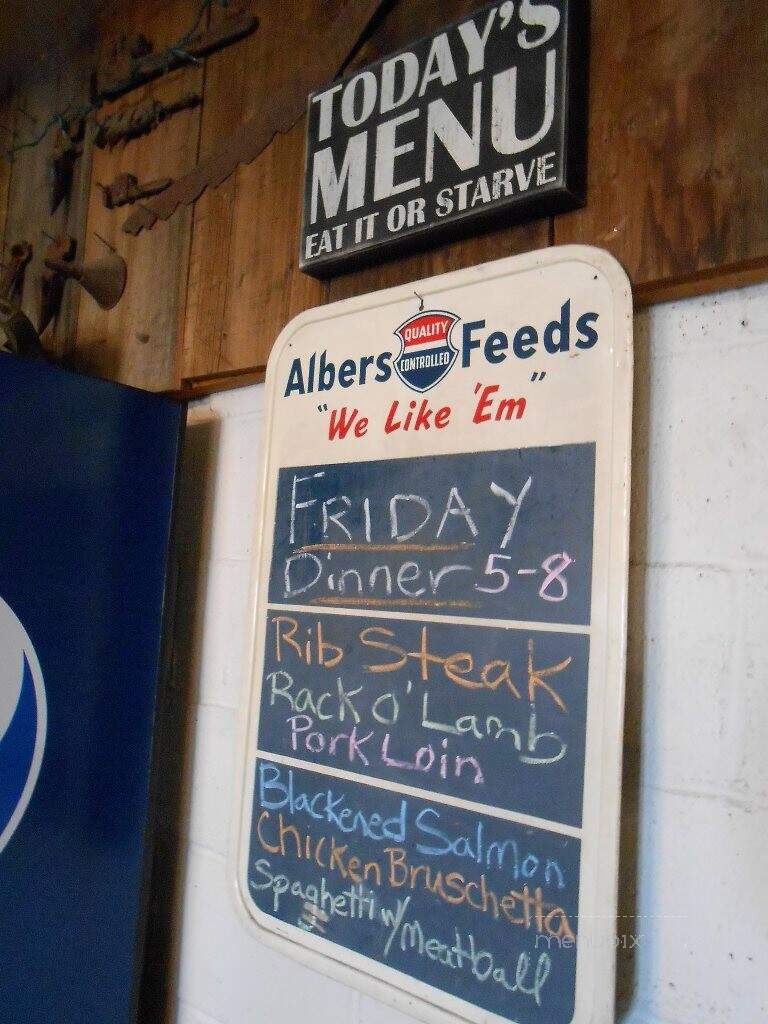 TODAY'S
MENU
EAT IT OR STARVE
Albers QUALITY CONTROLLED Feeds
"We Like 'Em"
FRIDAY
Dinner 5-8
Rib Steak
Rack O' Lamb
Pork Loin
Blackened Salmon
Chicken Bruschetta
Spaghetti w/ Meatball
menupix